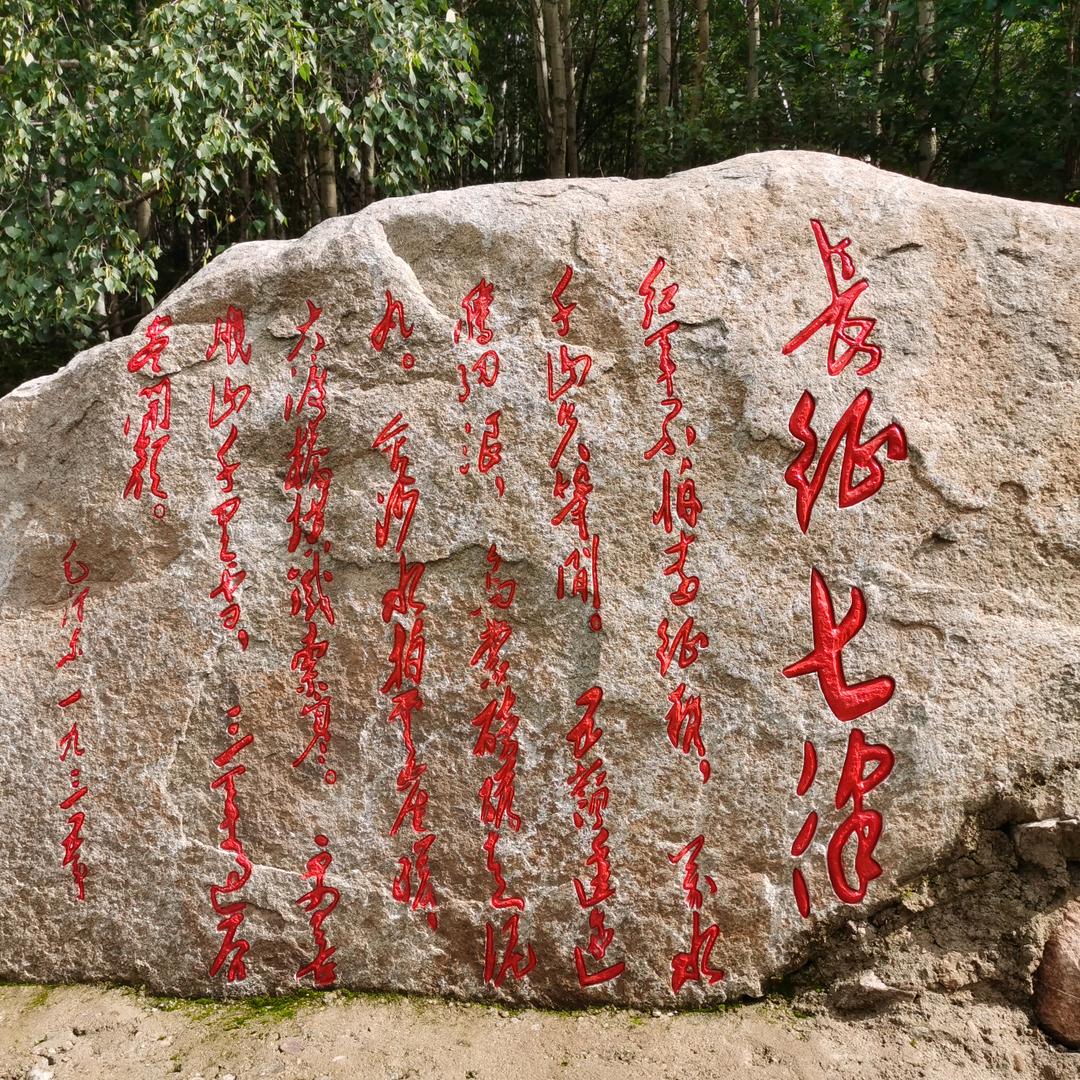 长征七律
红军不怕远征难，万水
千山只等閒。五嶺逶迤
腾细浪，乌蒙磅礴走泥
丸。金沙水拍云崖暖，
大渡橋横铁索寒。更喜
岷山千里雪，三军过后
尽開颜。
毛泽东 一九三五年